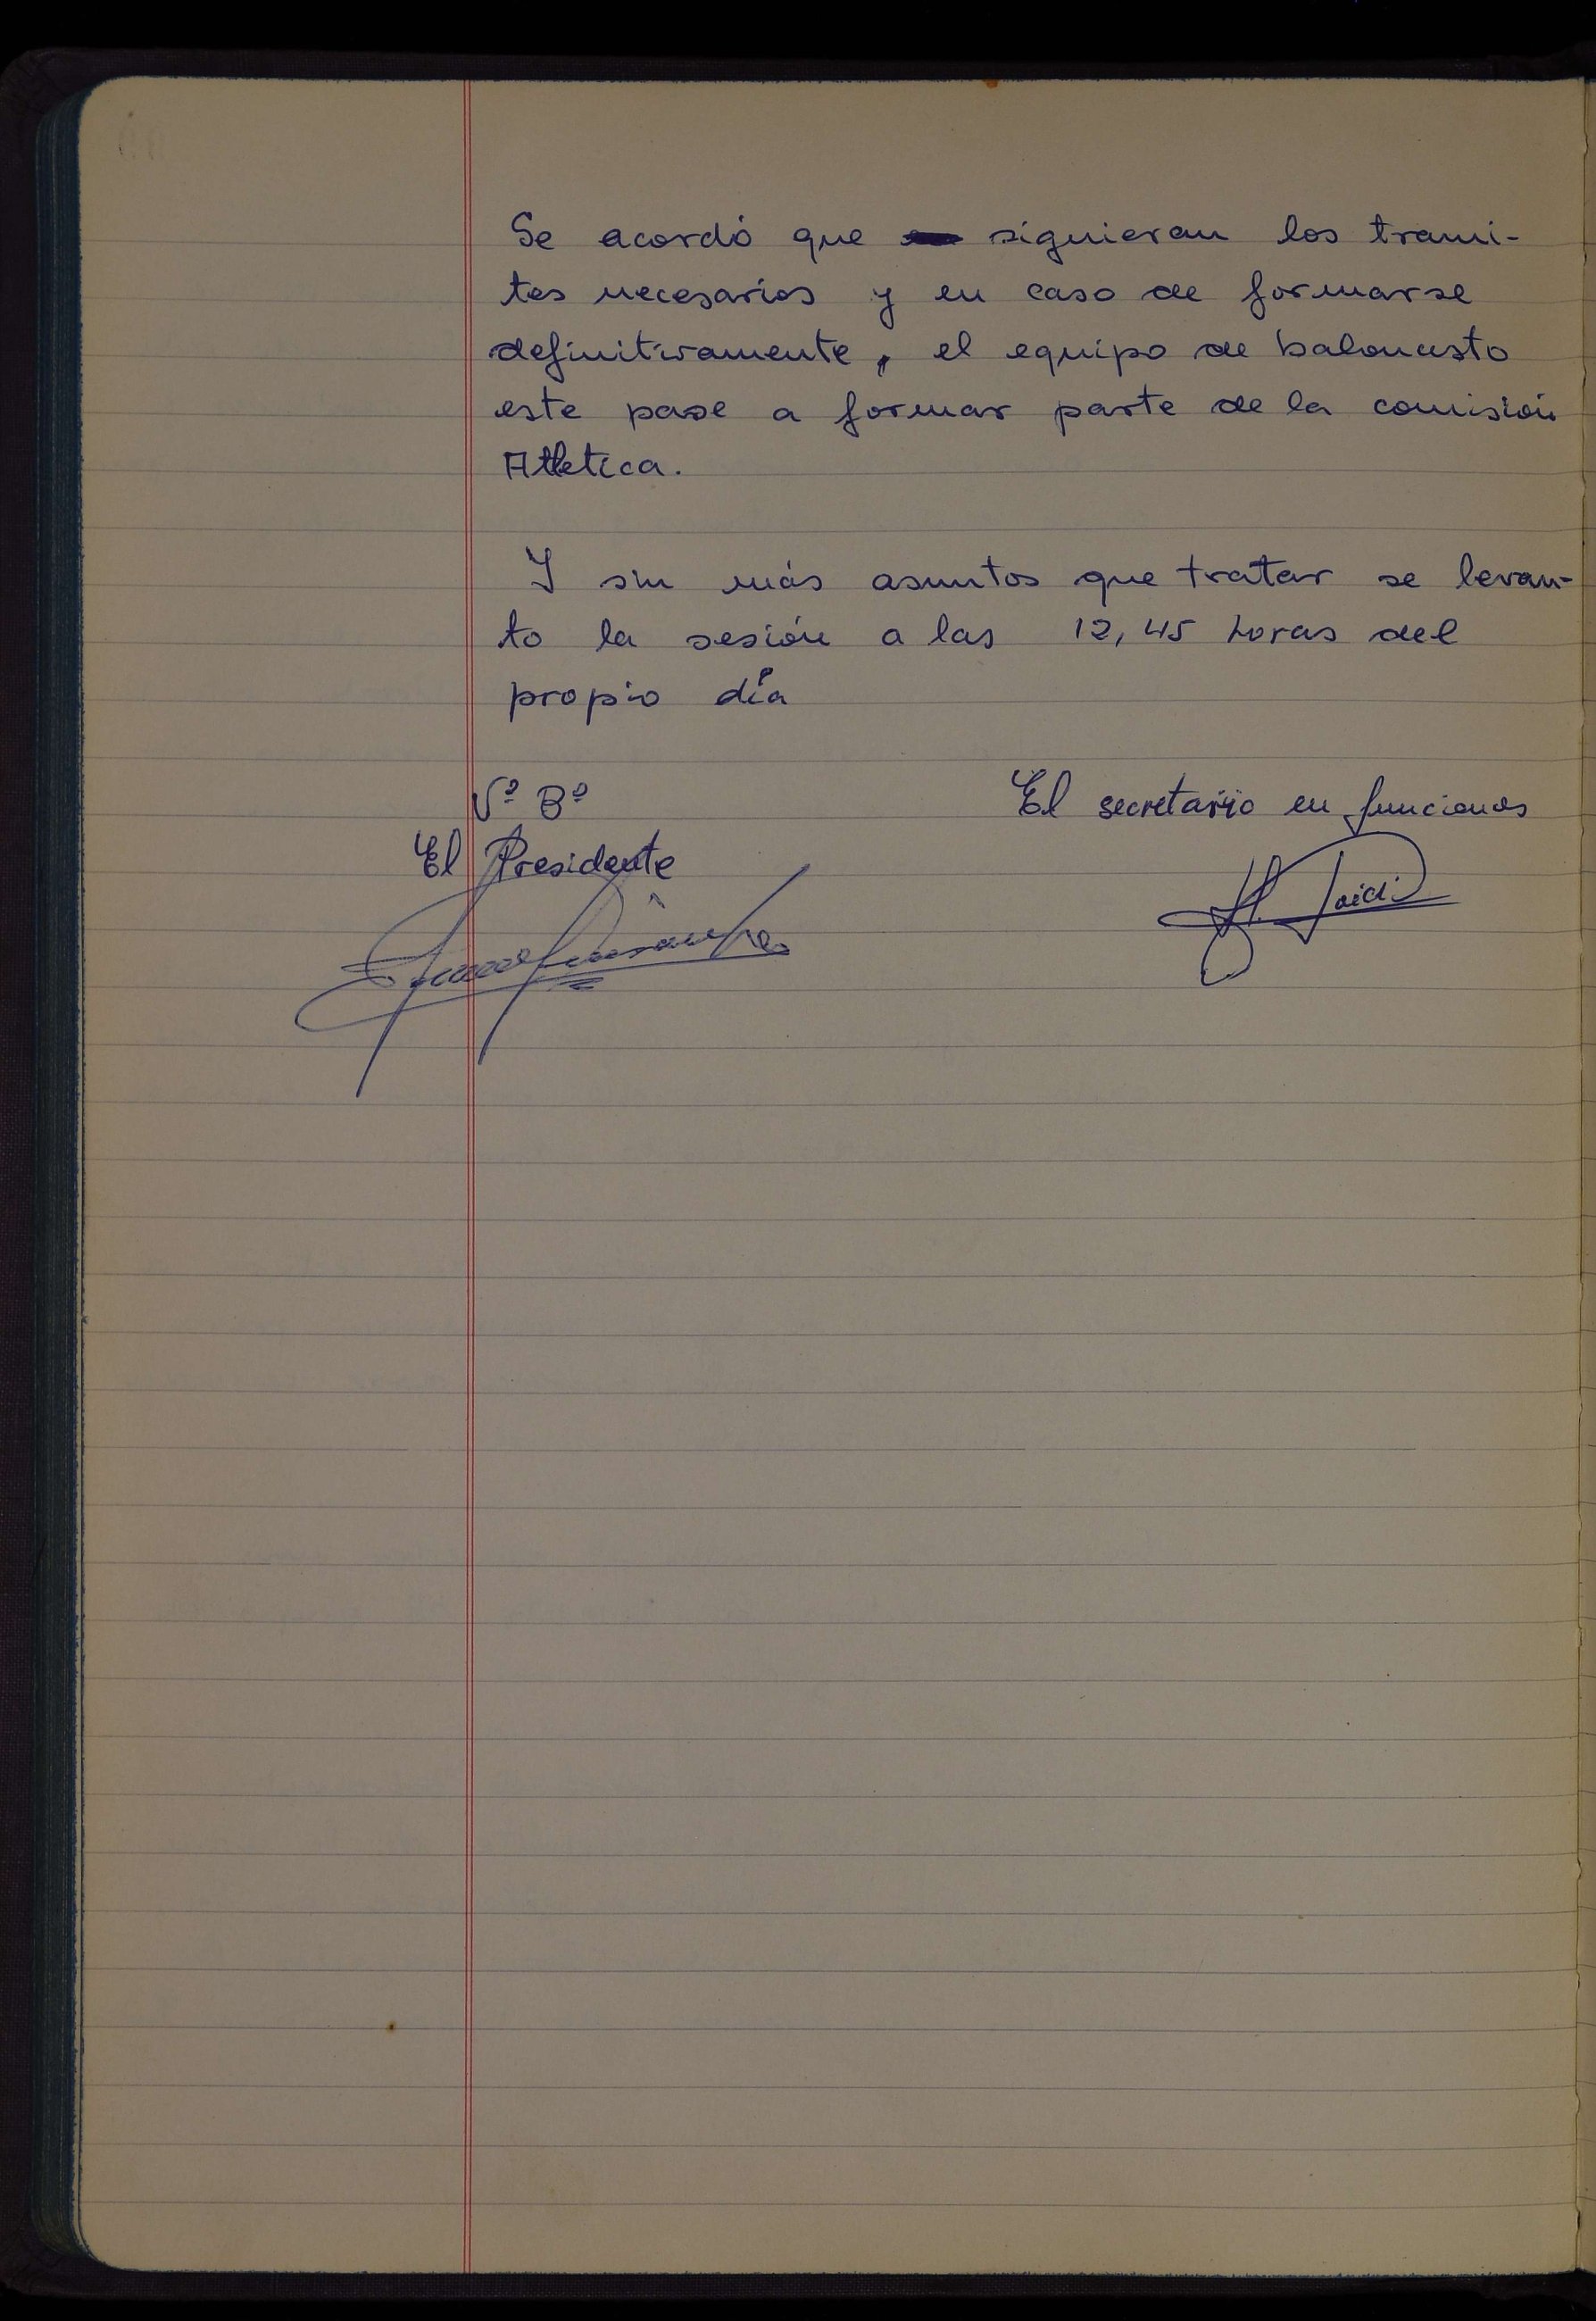 Se acordó que siguieran los trami-
tes necesarios y en caso de formarse
definitivamente, el equipo de baloncesto
este pase a formar parte de la comisión
Atletica.
Y sin más asuntos que tratar se levan-
to la sesión a las 12,45 horas del
propio día
Vº Bº
El secretario en funciones
El Presidente